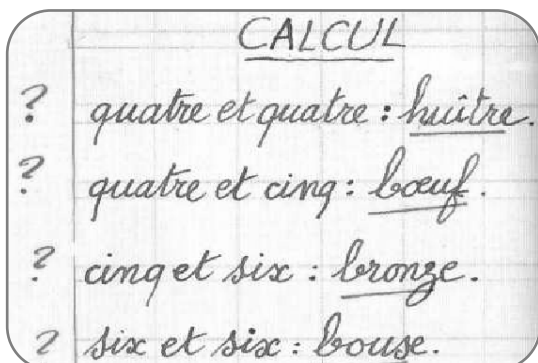 CALCUL
? quatre et quatre : huître.
? quatre et cinq : bœuf.
? cinq et six : bronze.
? six et six : bouse.